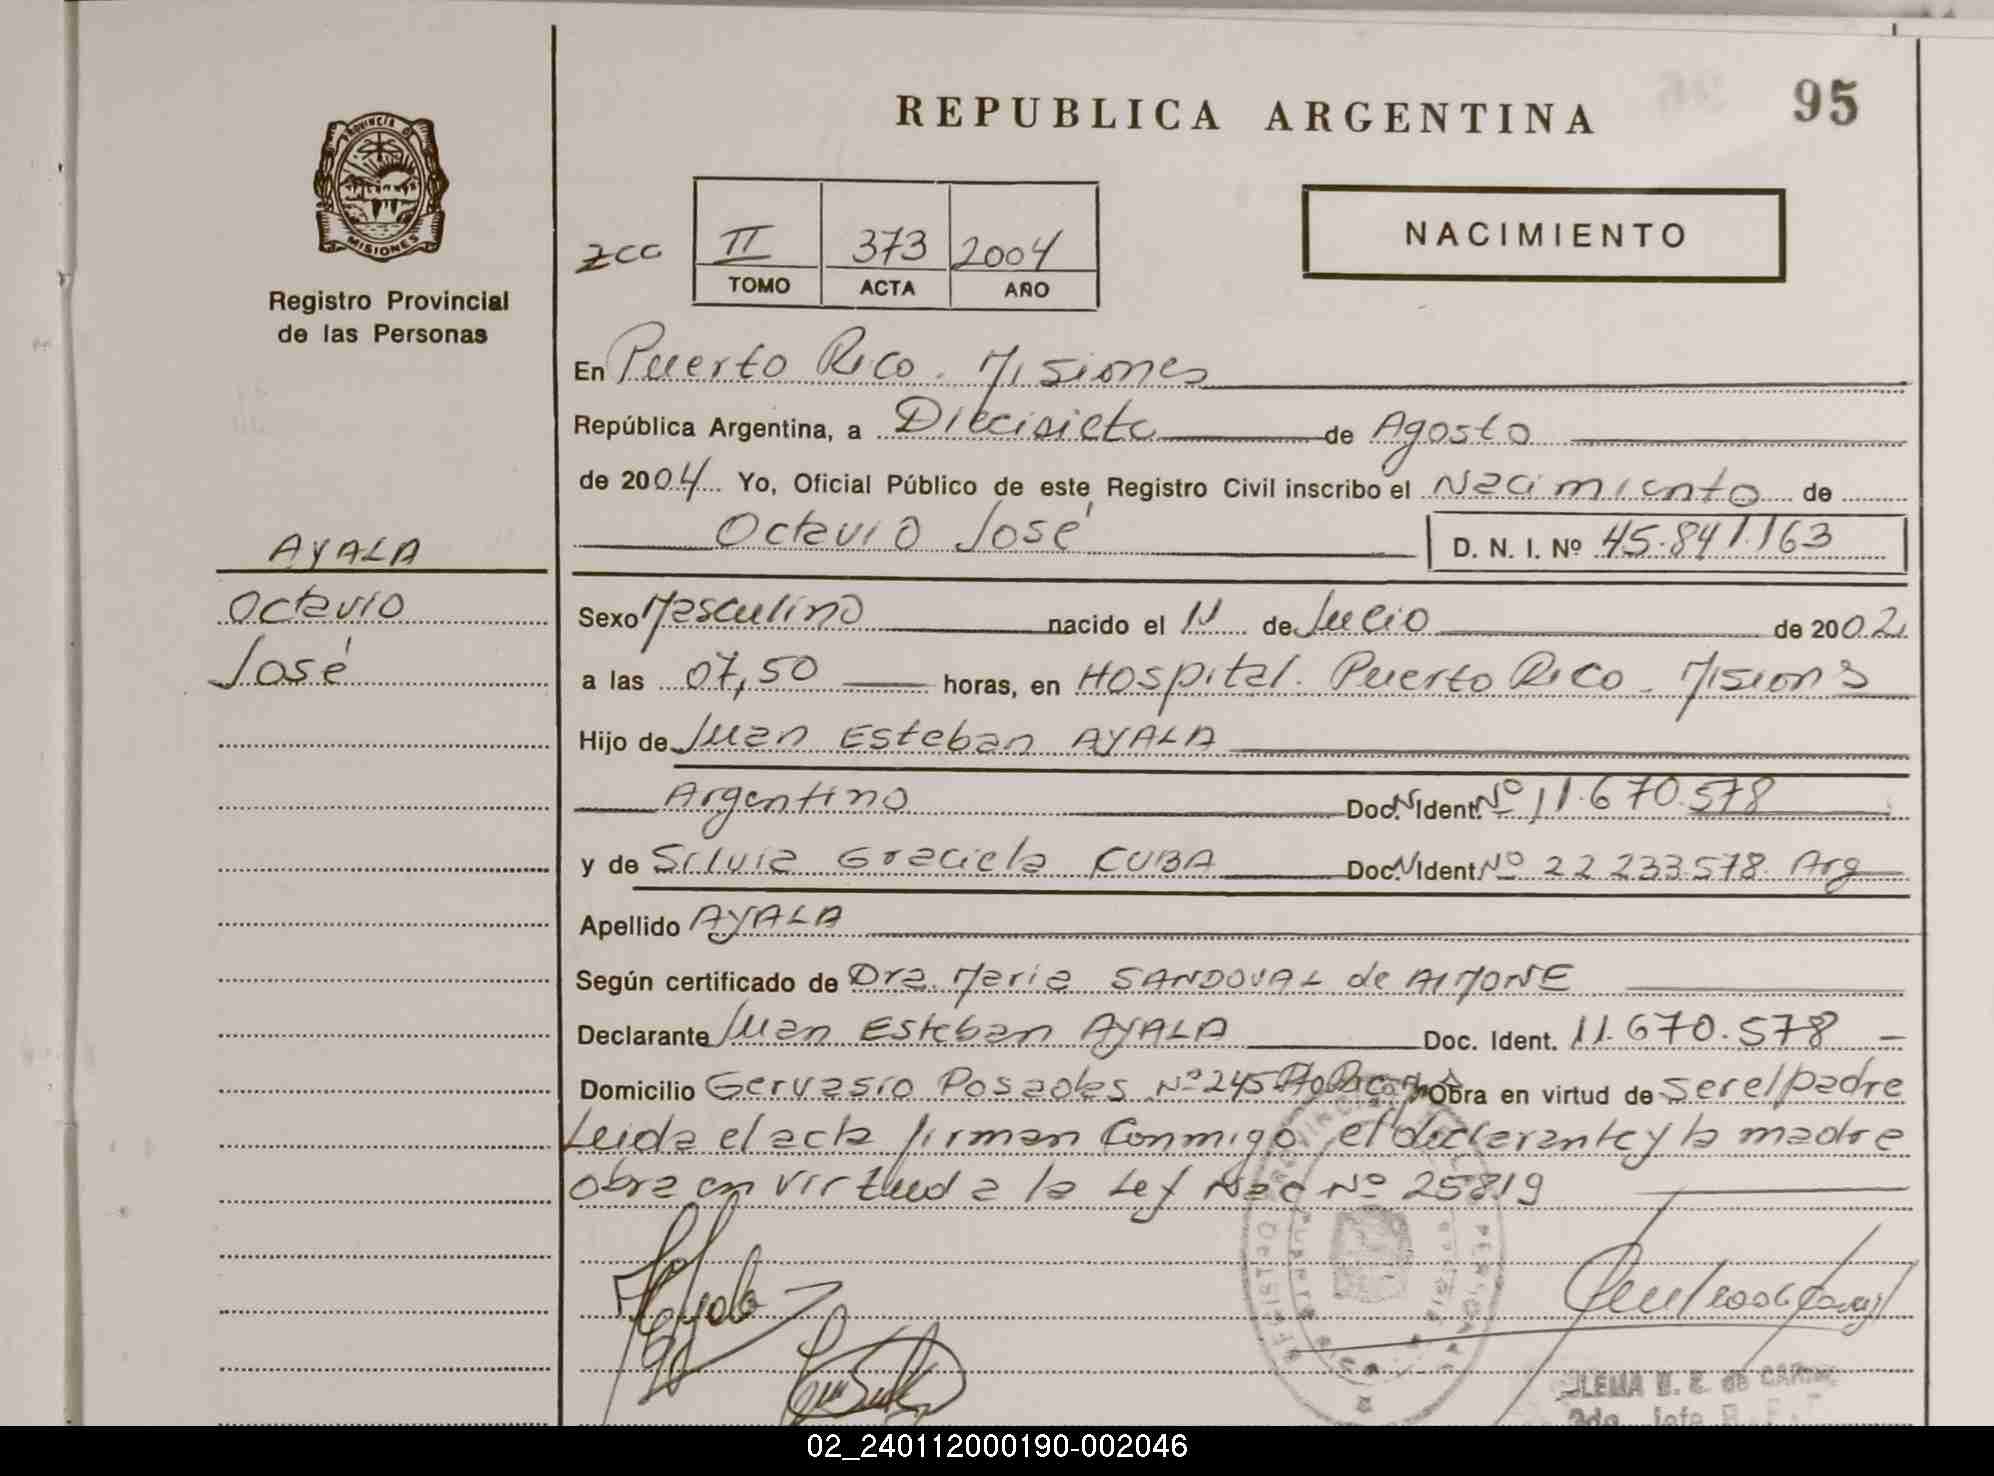 REPUBLICA ARGENTINA
95
PROVINCIA DE
MISIONES
Registro Provincial
de las Personas
zcc
II 373 2004
TOMO ACTA AÑO
NACIMIENTO
En Puerto Rico. Misiones
República Argentina, a Diecisiete de Agosto
de 2004 Yo, Oficial Público de este Registro Civil inscribo el Nacimiento de
Octavio José D. N. I. Nº 45.841.163
AYALA
Octavio
José
Sexo Masculino nacido el 11 de Julio de 2002
a las 07,50 horas, en Hospital. Puerto Rico. Misiones
Hijo de Juan Esteban AYALA
Argentino Doc. N Ident. Nº 11.670.578
y de Silvia Graciela CUBA Doc. N Ident. Nº 22.233.578 Arg
Apellido AYALA
Según certificado de Dra. Maria SANDOVAL de AIMONE
Declarante Juan Esteban AYALA Doc. Ident. 11.670.578
Domicilio Gervasio Posadas Nº 245 Pto Rico Obra en virtud de ser el padre
Leida el acta firman Conmigo el declarante y la madre
obra en virtud a la Ley Nac Nº 25819
02_240112000190-002046